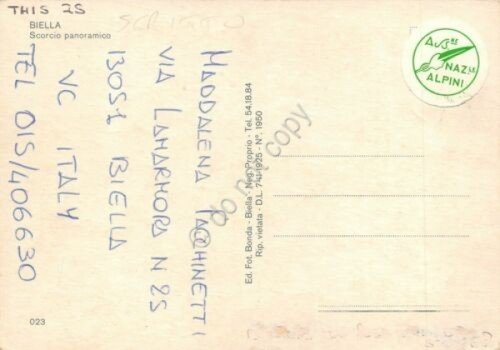 THIS IS
BIELLA
Scorcio panoramico
MADDALENA
VIA LAMARMORA N 25
13051 BIELLA
VC ITALY
TEL 015/406630
Ed. Fot. Bonda - Biella - Neg. Proprio - Tel. 54.18.84
Rip. vietata - D.L. 7-11-1925 - N° 1950
ASS. NE
NAZ. LE
ALPINI
do not copy
023